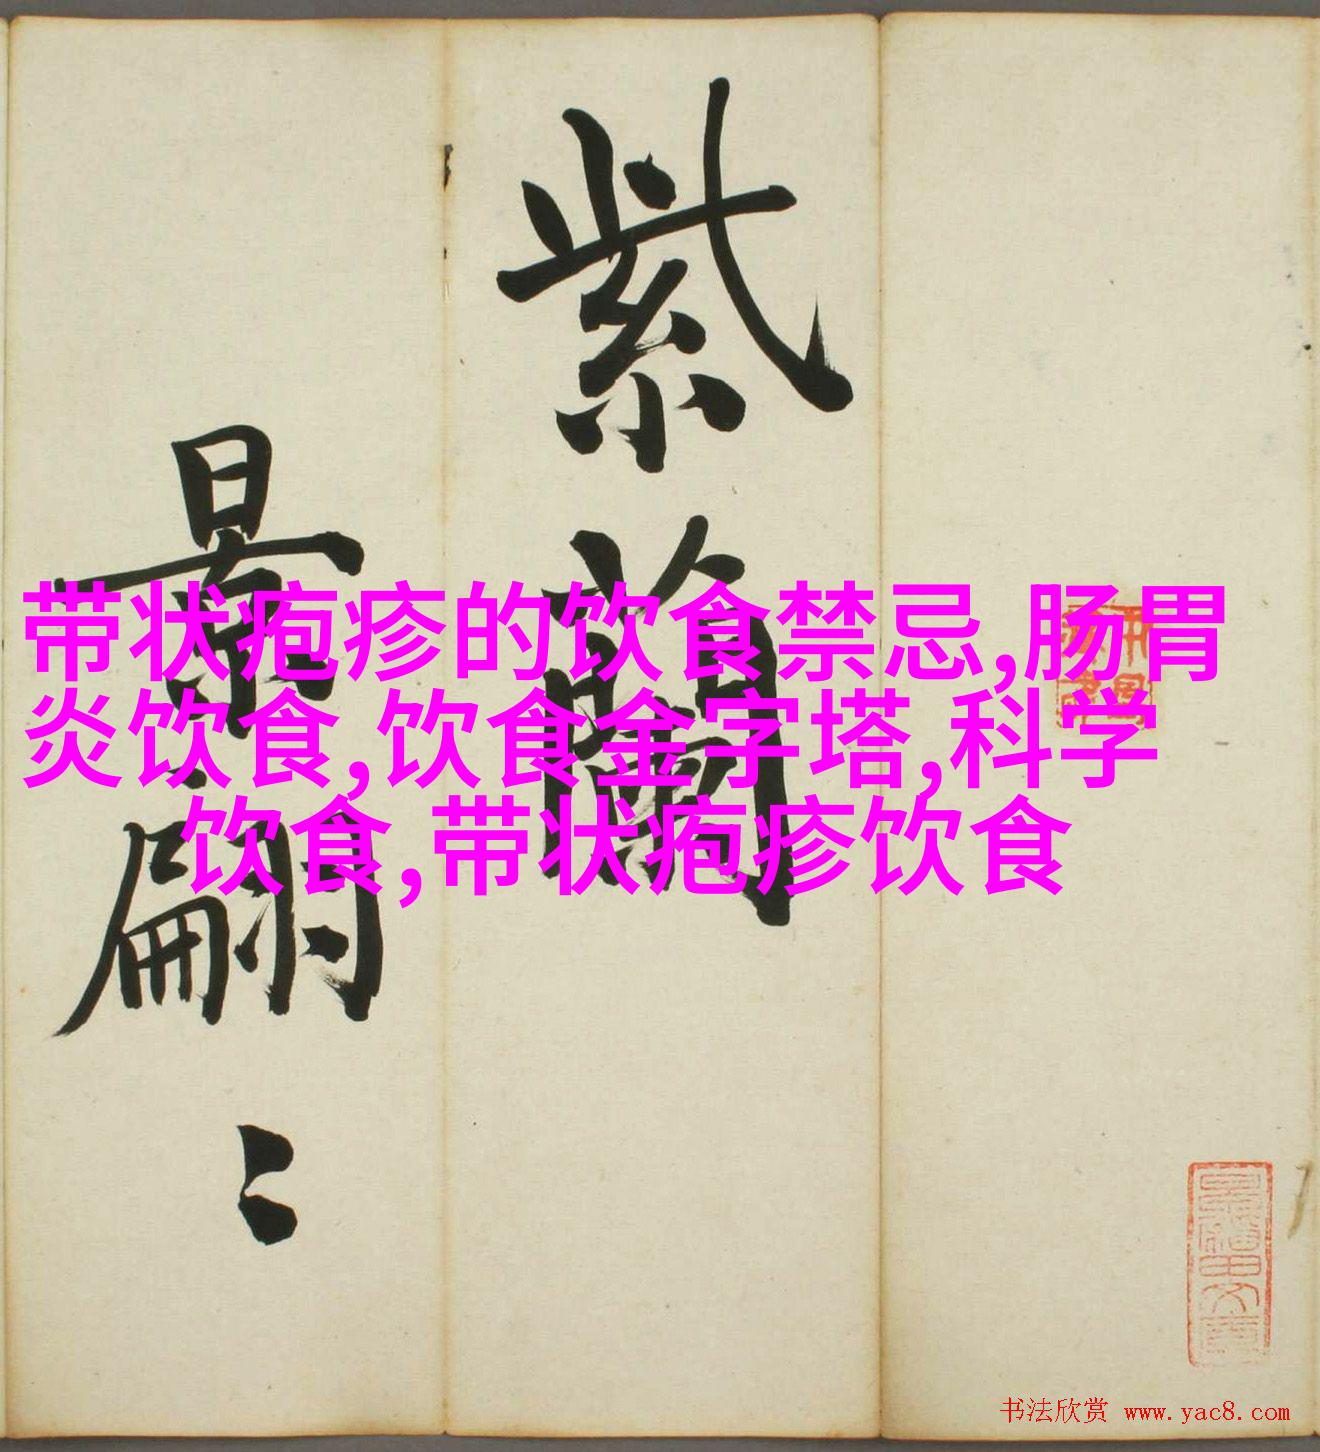 紫蘭
景翩〻
带状疱疹的饮食禁忌,肠胃
炎饮食,饮食金字塔,科学
饮食,带状疱疹饮食
书法欣赏 www.yac8.com